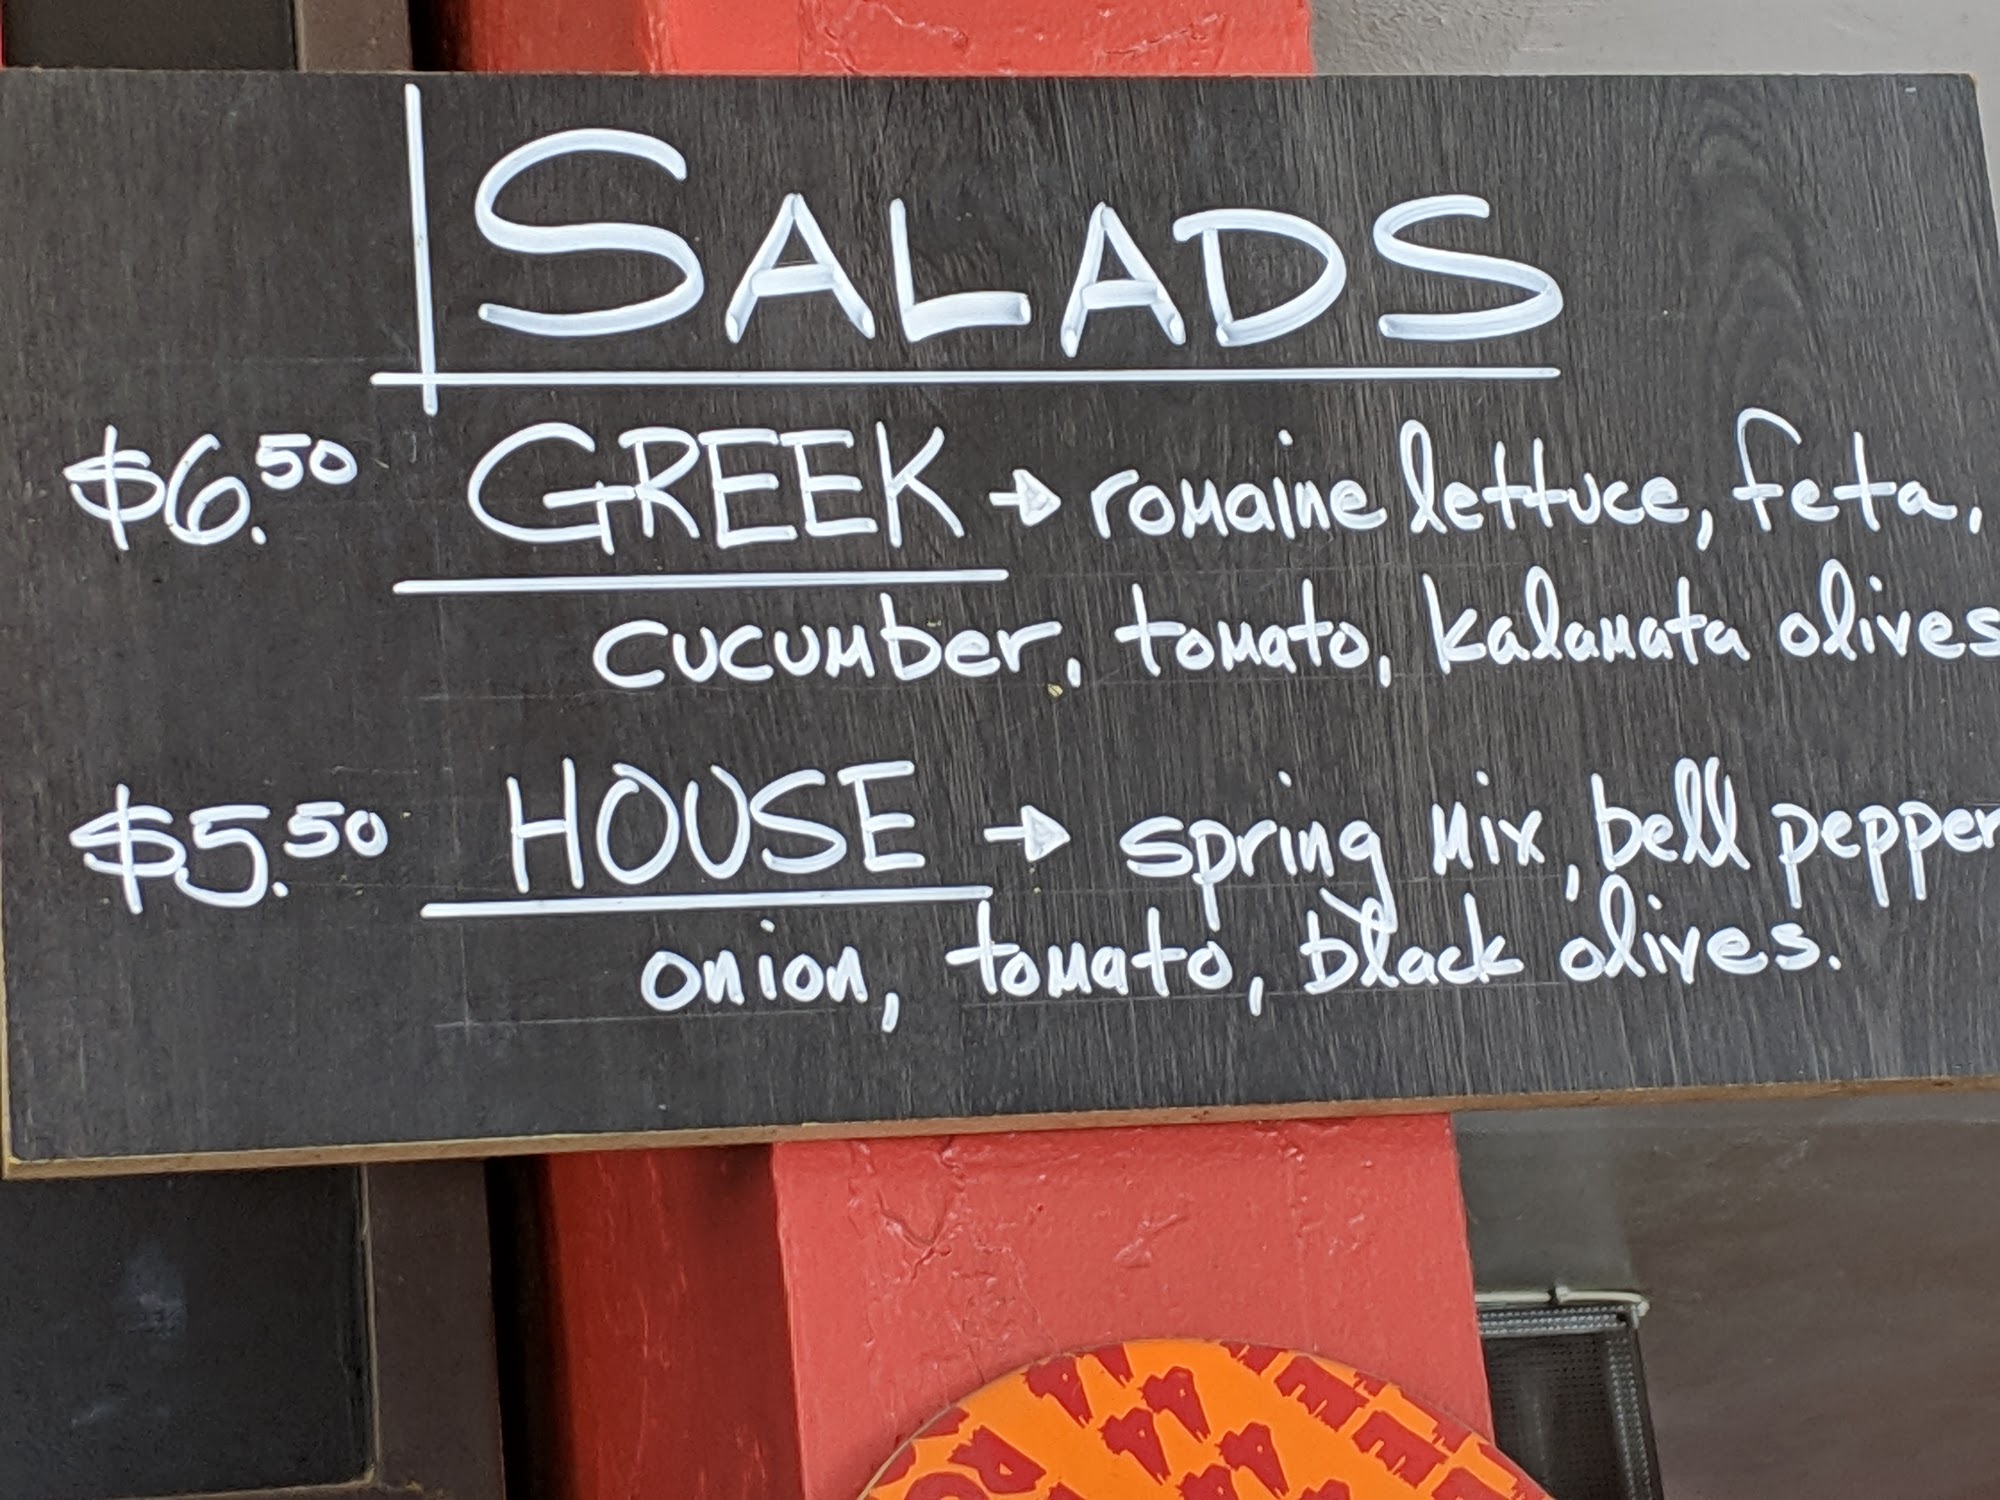 SALADS
$6.50 GREEK → romaine lettuce, feta,
cucumber, tomato, kalamata olives
$5.50 HOUSE → spring mix, bell pepper
onion, tomato, black olives.